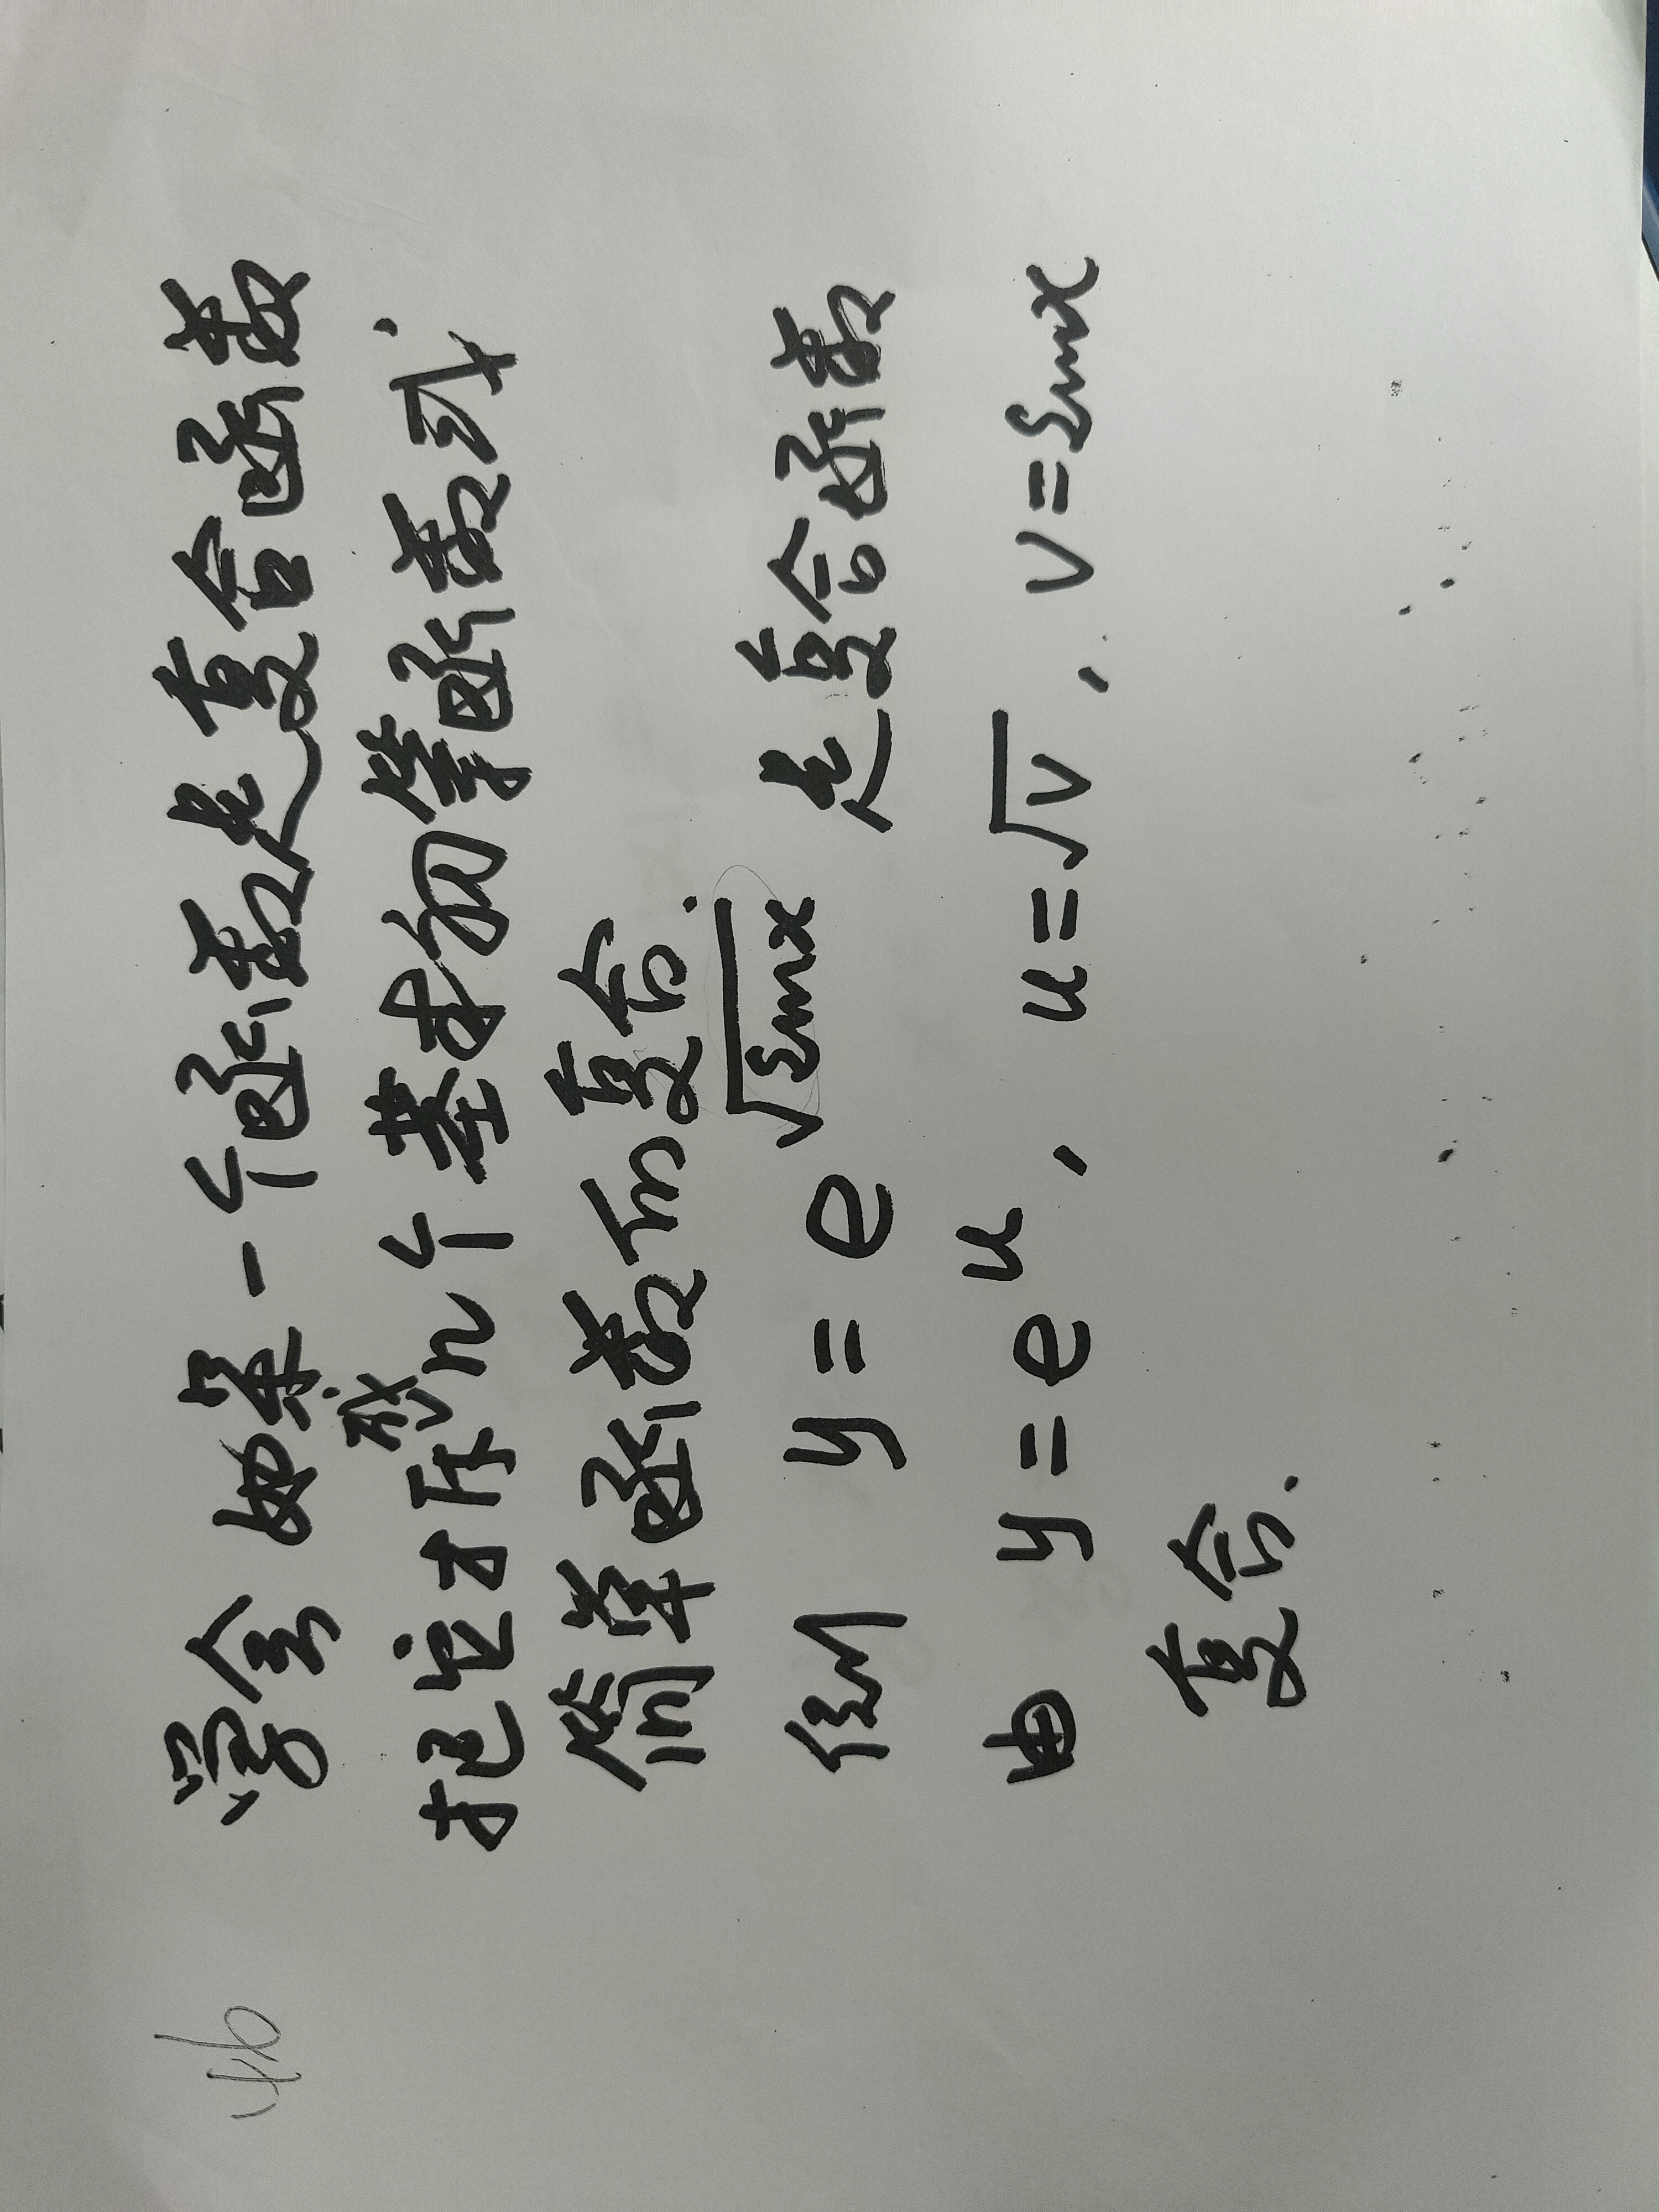 46
学会 如果一个函数是复合函数
把它拆成几个基本初等函数或
简单函数而复合.
例 y = e^√sinx 是复合函数
由 y = e^u, u = √v, v = sinx
复合.